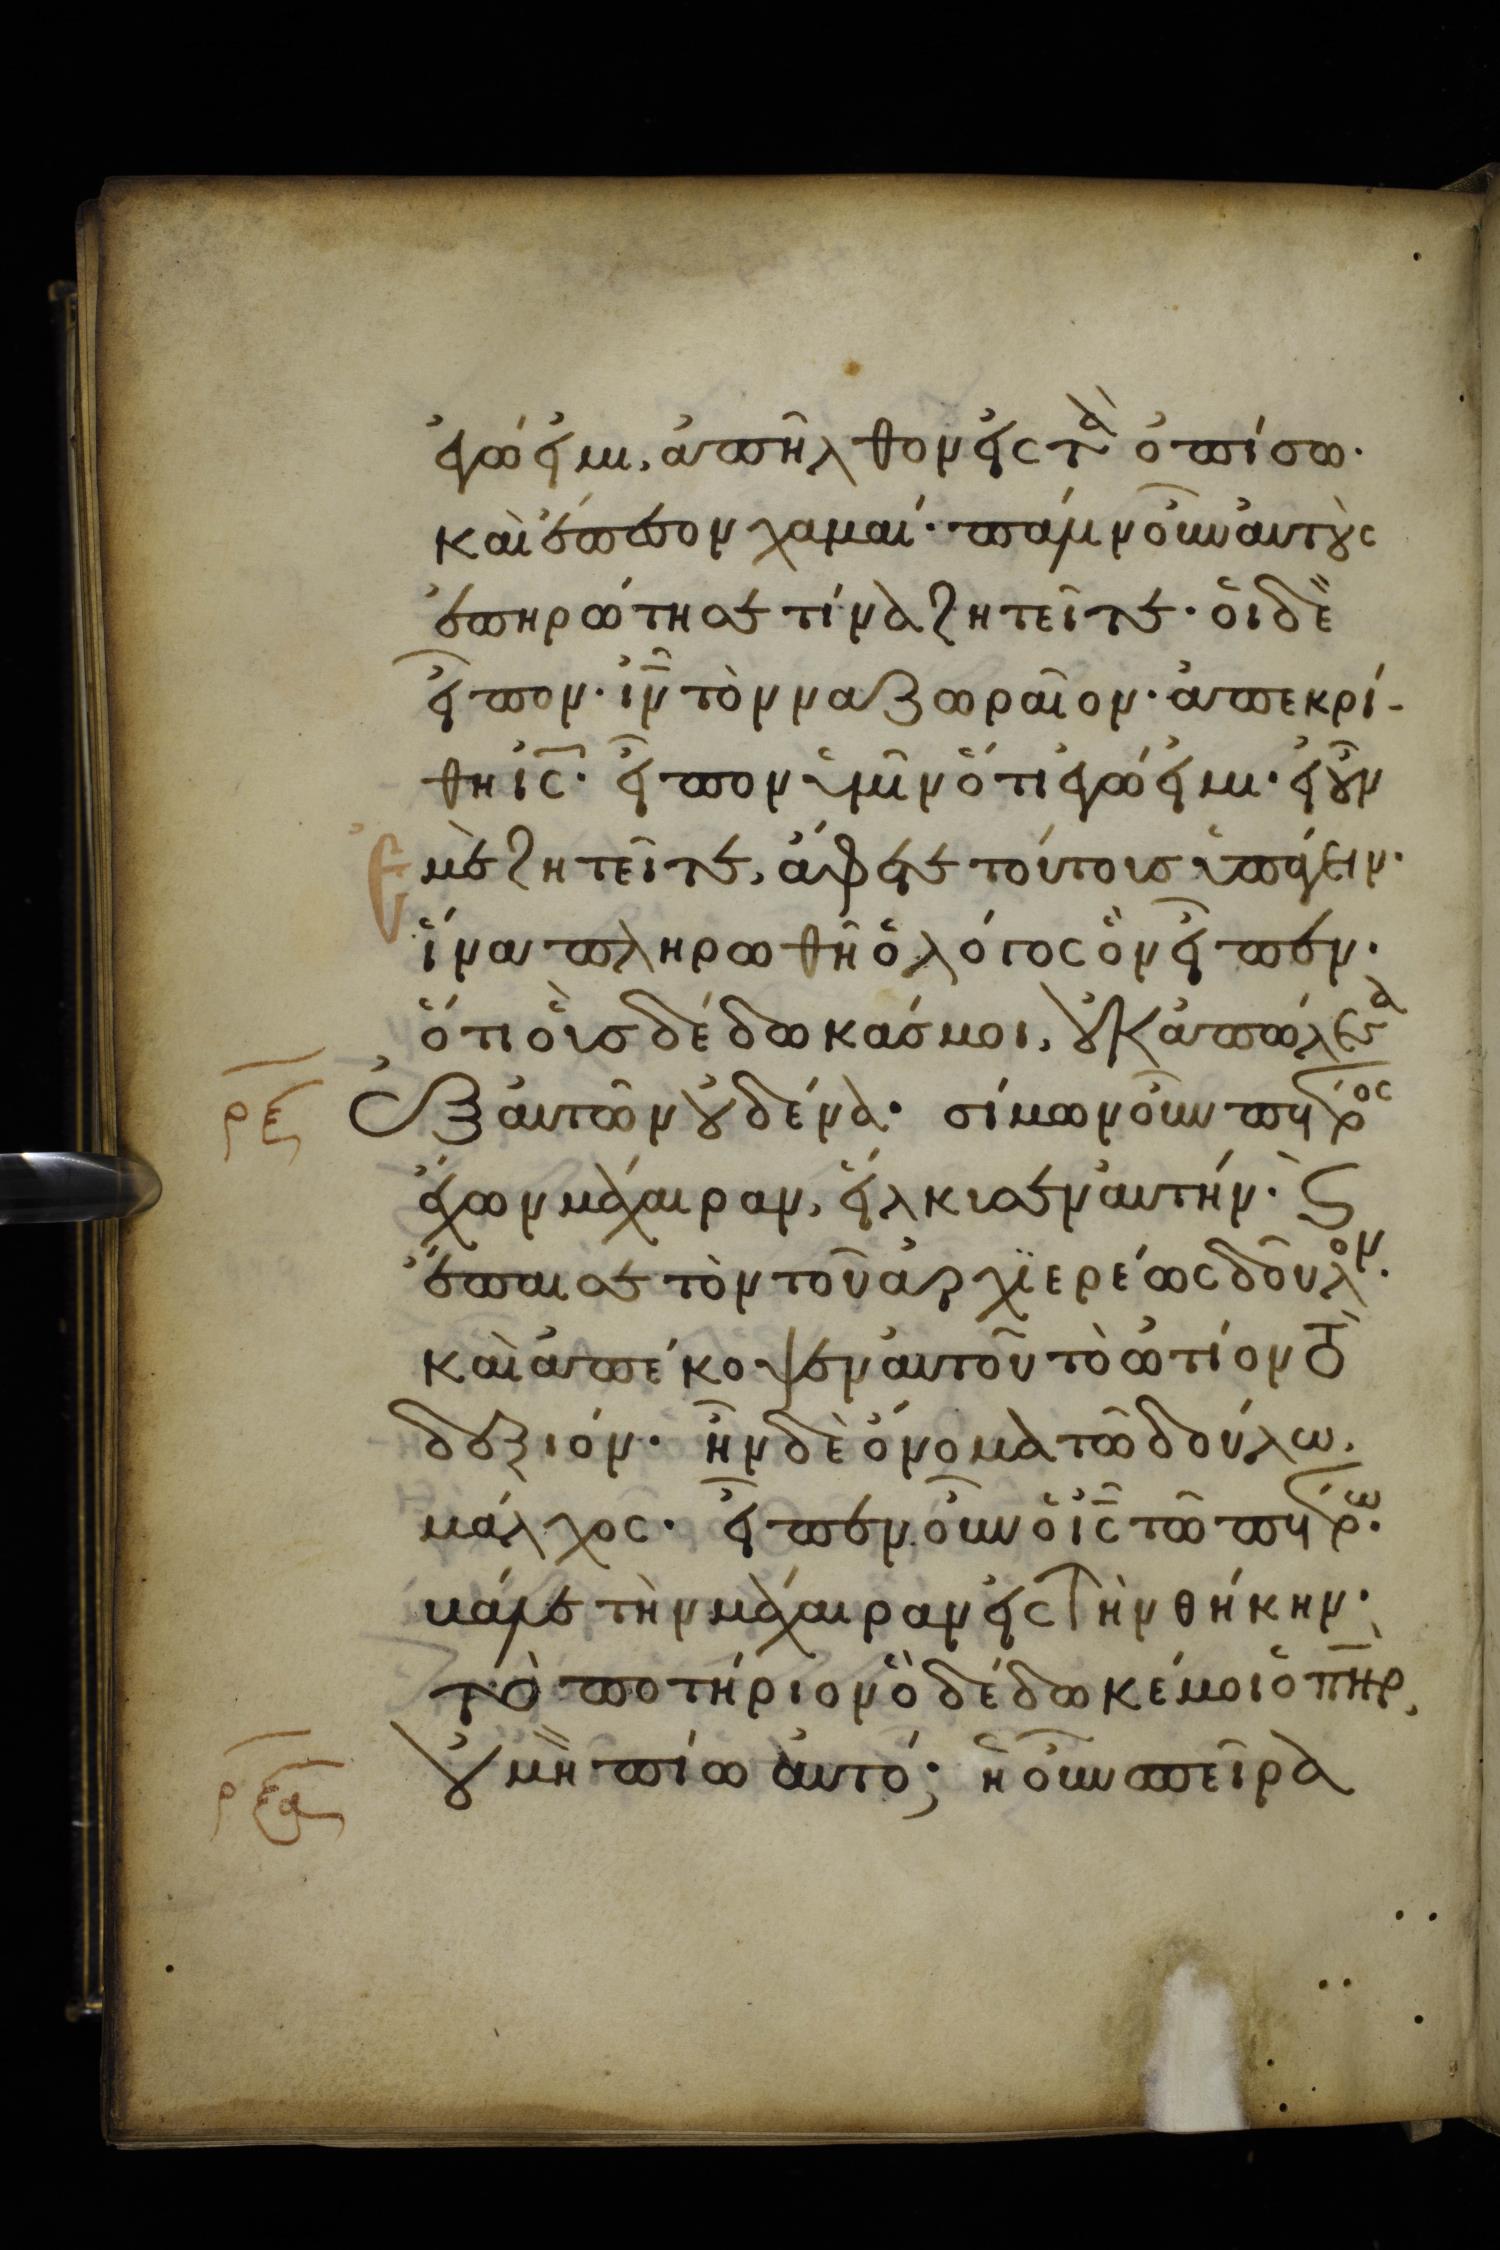 ἐγώ εἰμι, ἀπῆλθον εἰς τὰ ὀπίσω·
καὶ ἔπεσον χαμαί· πάλιν οὖν αὐτοὺς
ἐπηρώτησε τίνα ζητεῖτε· οἱ δὲ
εἶπον· ἰν τὸν ναζωραῖον· ἀπεκρί-
θη ις· εἶπον ὑμῖν ὅτι ἐγώ εἰμι· εἰ οὖν
ἐμὲ ζητεῖτε, ἄφετε τούτους ὑπάγειν·
ἵνα πληρωθῆ ὁ λόγος ὃν εἶπεν·
ὅτι οὓς δέδωκάς μοι, οὐκ ἀπώλεσα
ρξ ἐξ αὐτῶν οὐδένα· σίμων οὖν πέτρος
ἔχων μάχαιραν, εἵλκυσεν αὐτήν· ϛ
ἔπαισε τὸν τοῦ ἀρχϊερέως δοῦλον·
καὶ ἀπέκοψεν αὐτοῦ τὸ ὠτίον τὸ
δεξιόν· ἦν δὲ ὄνομα τῶ δούλω,
μάλχος· εἶπεν οὖν ὁ ις τῶ πέτρω·
βάλε τὴν μάχαιραν εἰς τὴν θήκην·
τὸ ποτήριον ὃ δέδωκέ μοι ὁ πηρ,
ρξα οὐ μὴ πίω αὐτό; ἡ οὖν σπεῖρα